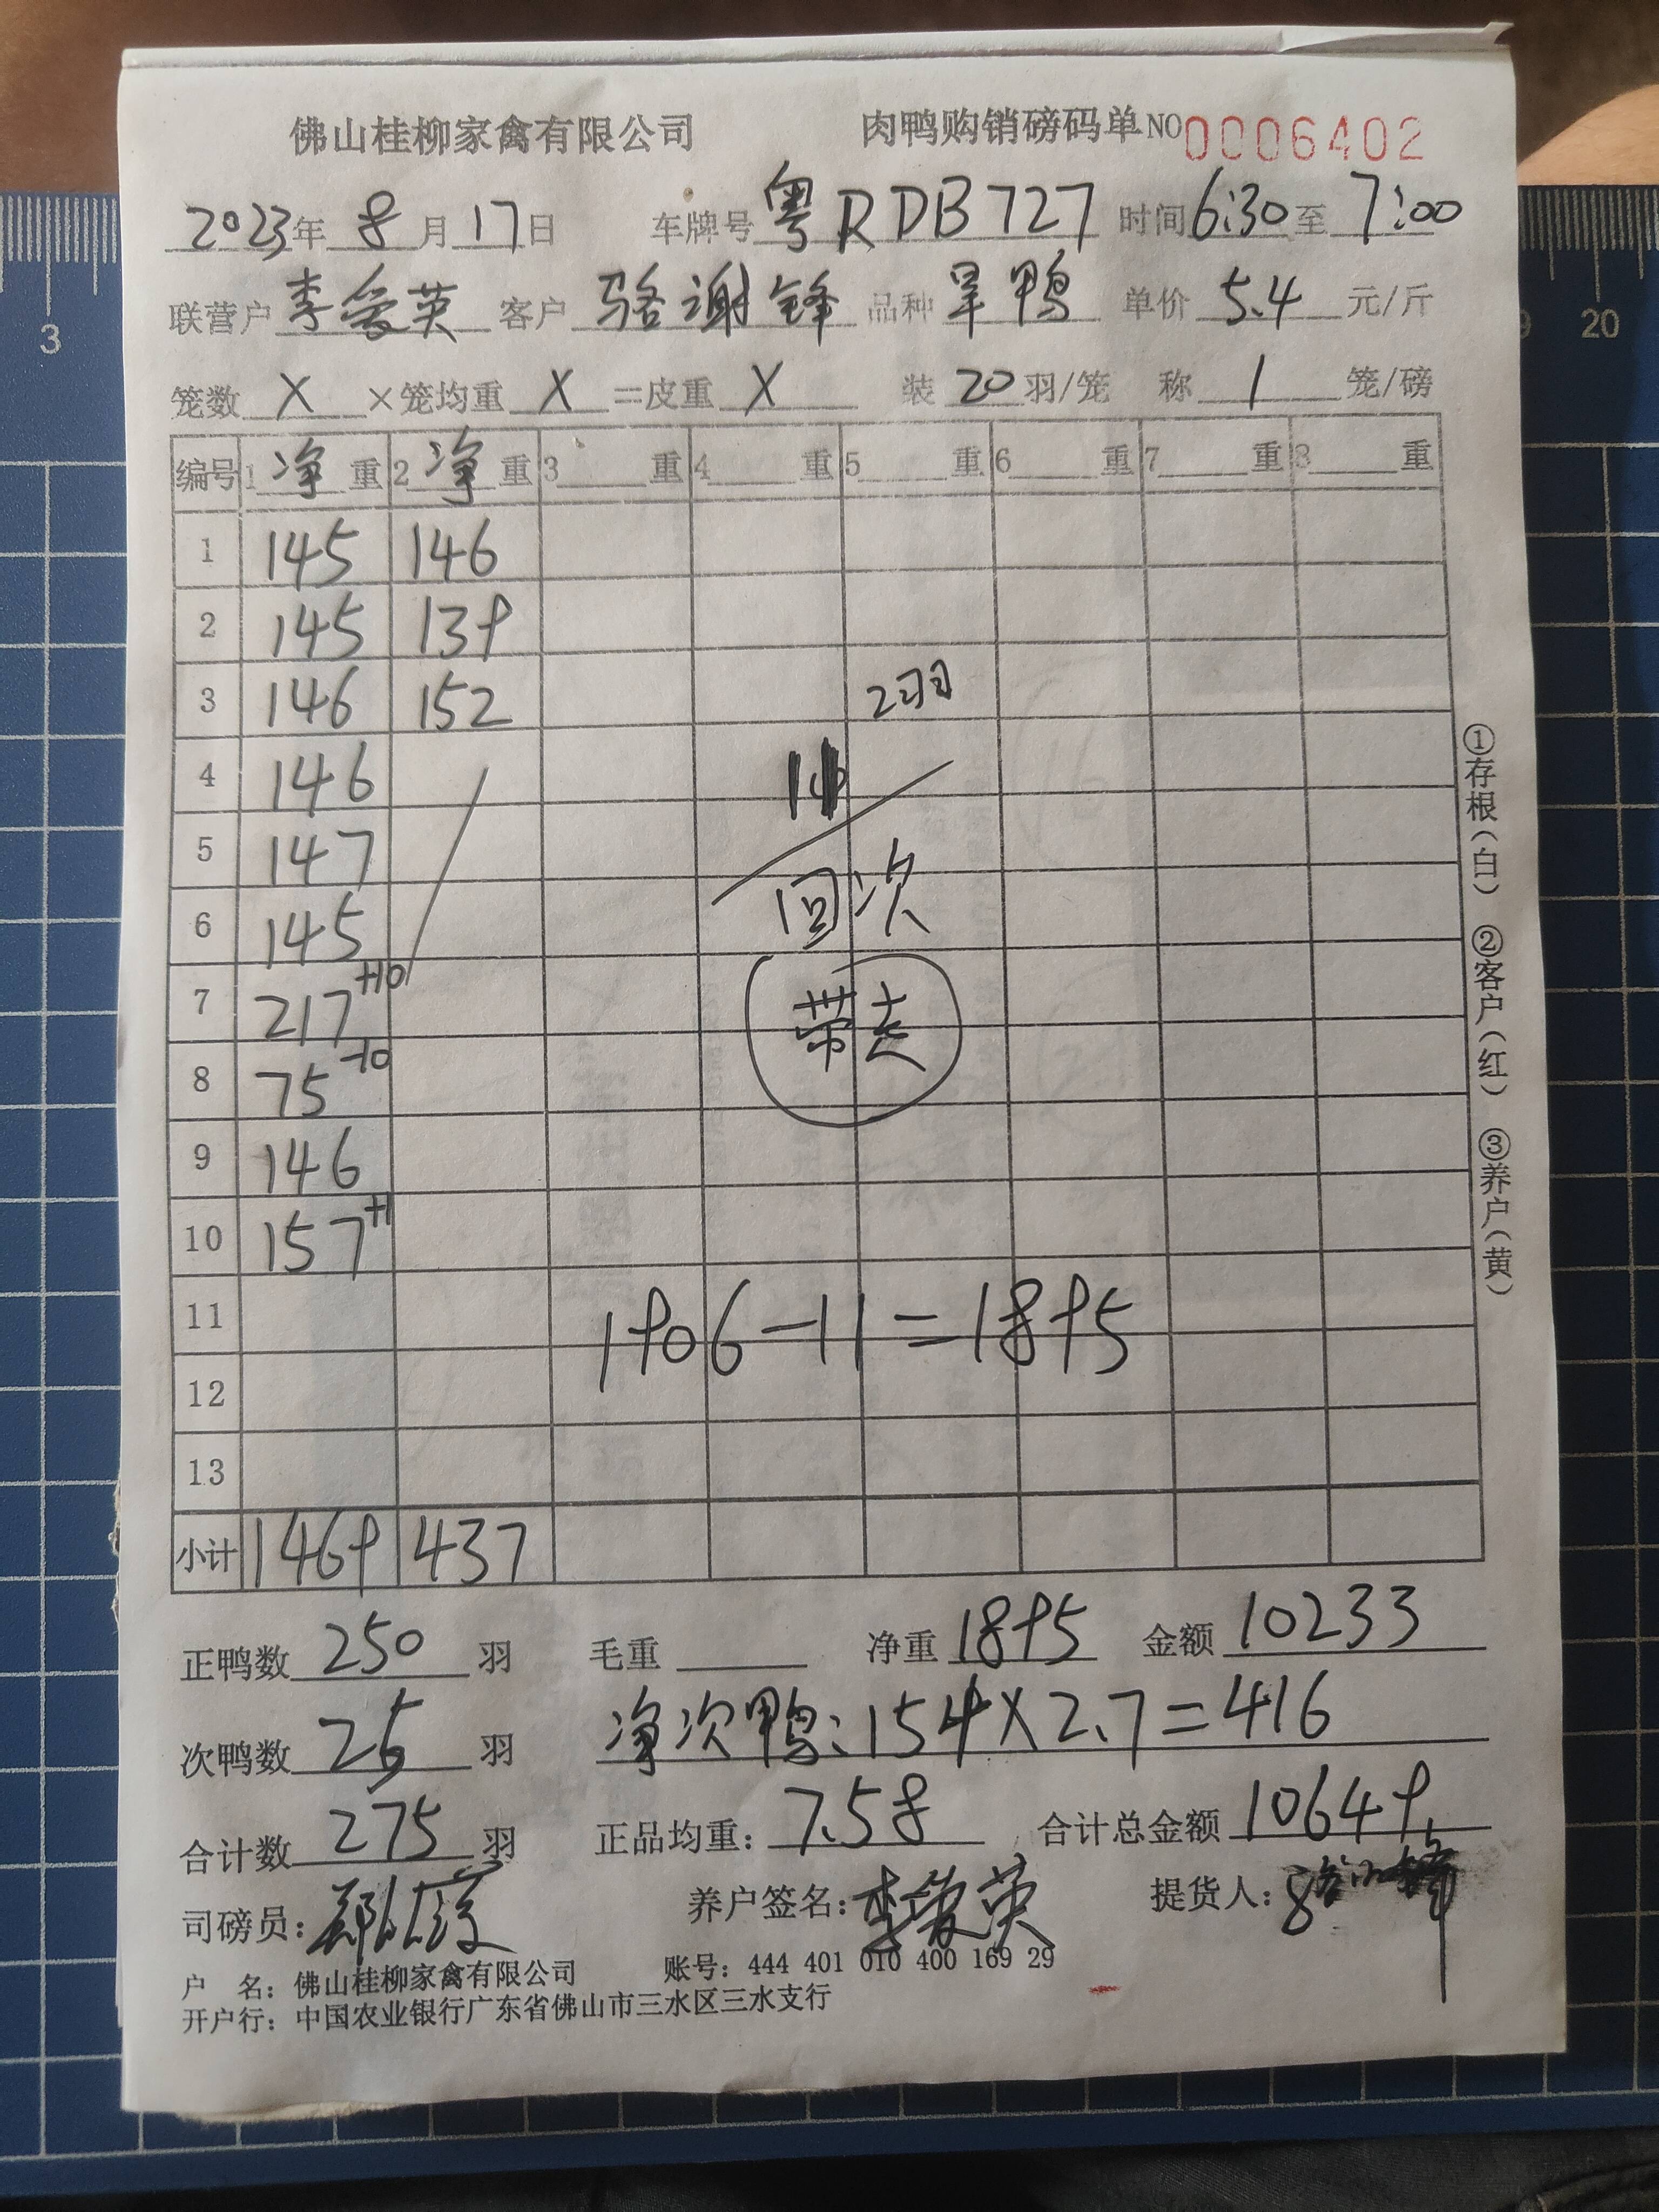 佛山桂柳家禽有限公司 肉鸭购销磅码单NO 0006402
2023年 8月 17日 车牌号 粤RDB727 时间 6:30 至 7:00
联营户 李爱英 客户 骆谢锋 品种 旱鸭 单价 5.4 元/斤
笼数 X ×笼均重 X =皮重 X 装 20 羽/笼 称 1 笼/磅
编号 1 净 重 2 净 重 3 重 4 重 5 重 6 重 7 重 8 重
1 145 146
2 145 139
3 146 152 2羽
4 146
5 147
6 145 回次
7 217 +10 带走
8 75 -10
9 146
10 157 +1
11 1906-11=1895
12
13
小计 1469 437
正鸭数 250 羽 毛重 净重 1895 金额 10233
次鸭数 25 羽 净次鸭:154×2.7=416
合计数 275 羽 正品均重: 7.58 合计总金额 10649
司磅员: 养户签名: 李爱英 提货人:
户 名: 佛山桂柳家禽有限公司 账号: 444 401 010 400 169 29
开户行: 中国农业银行广东省佛山市三水区三水支行
①存根(白) ②客户(红) ③养户(黄)
3
19 20